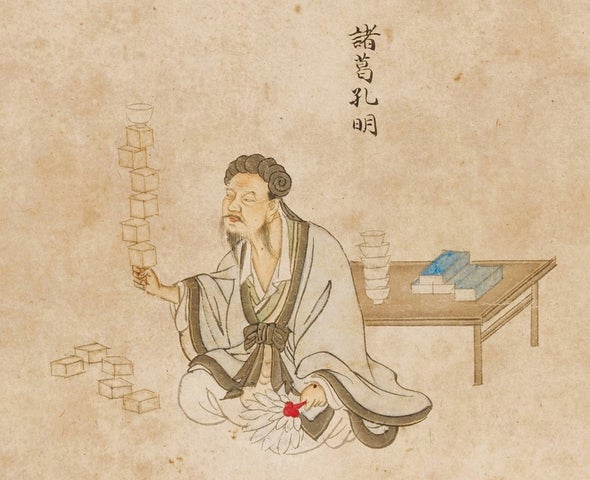 諸葛孔明